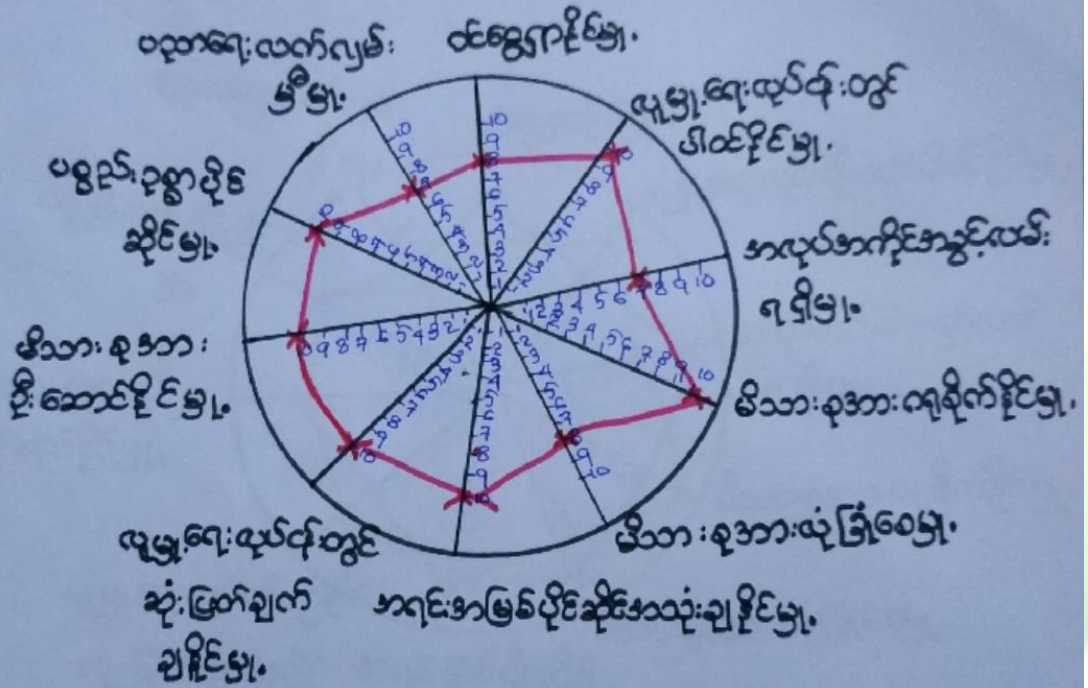 ပညာရေးလက်လှမ်း
မှီမှု.
ဝင်ငွေရှာနိုင်မှု.
လူမှု.ရေးလုပ်ငန်းတွင်
ပါဝင်နိုင်မှု.
ပစ္စည်းဥစ္စာပိုင်
ဆိုင်မှု.
အလုပ်အကိုင်အခွင့်လမ်း
ရရှိမှု.
မိသားစုအား
ဦးဆောင်နိုင်မှု.
မိသားစုအားဂရုစိုက်နိုင်မှု.
မိသားစုအားလုံခြုံစေမှု.
လူမှု.ရေးလုပ်ငန်းတွင်
ဆုံးဖြတ်ချက်
ချနိုင်မှု.
အရင်းအမြစ်ပိုင်ဆိုင်အသုံးချနိုင်မှု.
1 2 3 4 5 6 7 8 9 10
1 2 3 4 5 6 7 8 9 10
1 2 3 4 5 6 7 8 9 10
1 2 3 4 5 6 7 8 9 10
1 2 3 4 5 6 7 8 9 10
1 2 3 4 5 6 7 8 9 10
1 2 3 4 5 6 7 8 9 10
1 2 3 4 5 6 7 8 9 10
1 2 3 4 5 6 7 8 9 10
1 2 3 4 5 6 7 8 9 10